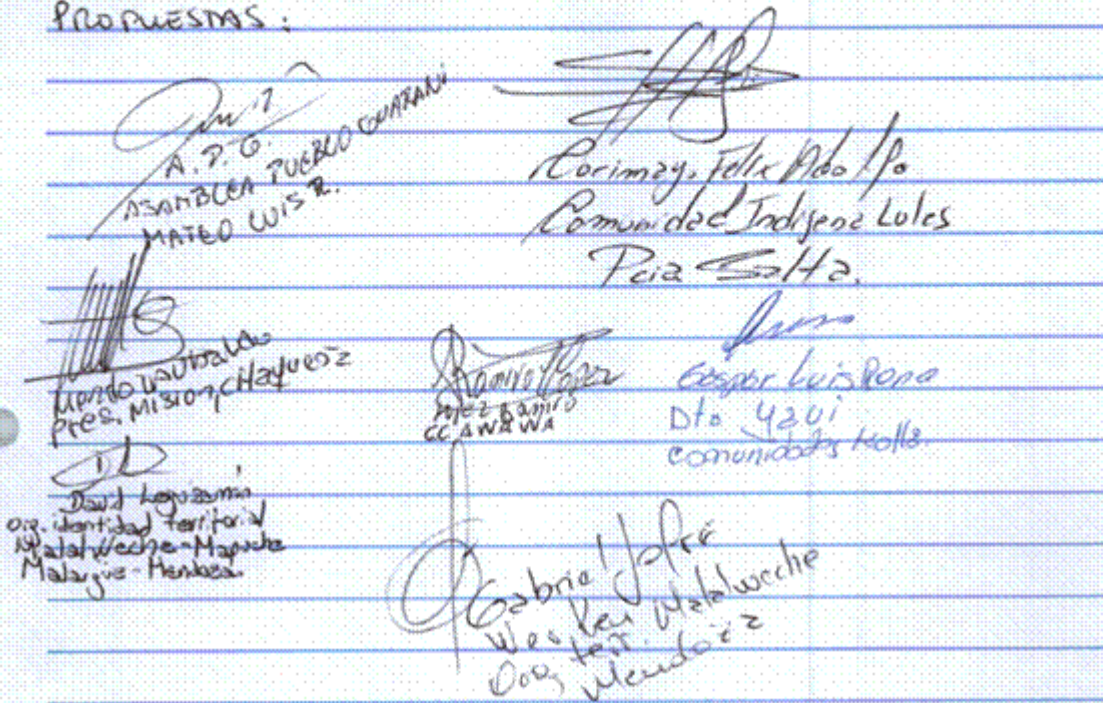 PROPUESTAS:
A.P.G.
ASAMBLEA PUEBLO GUARANI
MATEO LUIS R.
Corimayo, Felix Adolfo
Comunidad Indigena Lules
Pcia Salta.
Pres. Mision, Chaqueña
Ramiro Lopez
Lopez Ramiro
CC AWAWA
Gaspar Luis
Dto Yavi
Comunidades Kolla.
David Leguizamón
Org. identidad territorial
Malalweche-Mapuche
Malargüe-Mendoza.
Gabriel Jofré
Werken Malalweche
Org. terr.
Mendoza